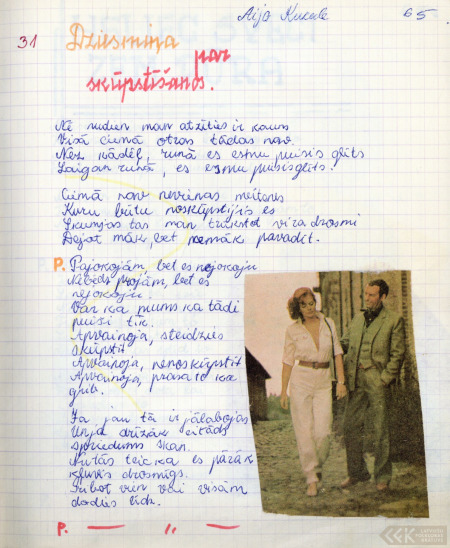 Aija Kukule
65
31
Dziesmiņa
par
skūpstīšanos.
Nē nudien man atzīties ir kauns
Visā ciemā otras tādas nav
Nez kādēļ, runā es esmu puisis glīts
Laigan runā, es esmu puisis glīts!
Ciemā nav nevienas meitenes
Kuru būtu noskūpstījis es
Skumjas tas man trūkstot vīra drosmi
Dejot māk, bet nemāk pavadīt.
P. Pajokojām, bet es nejokoju
Nebēdz projām, bet es
nejokoju
Var ka mums ka tādi
puiši tik.
Apvainoja, steidzies
skūpstīt
Apvainoja, nenoskūpstīt
Apvainoja, prasa to ka
grib.
Ja jau tā ir jālabojas
drīzāk citāds
spriedums skan.
Nu tās teic ka es pārāk
kļuvis drosmīgs.
vien vai visām
došos līdz.
P. — 11. —
LFK